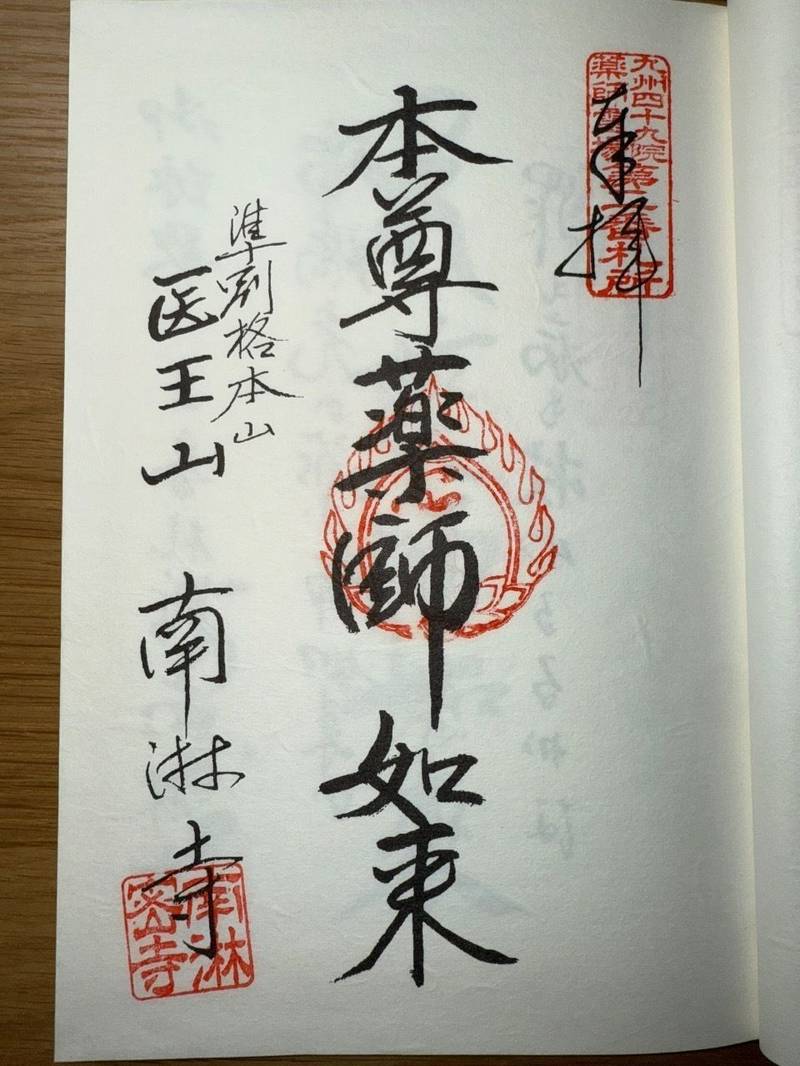 九州四十九院
薬師霊場
第二番札所
奉拝
本尊薬師如来
準別格本山
医王山 南淋寺
南淋
密寺